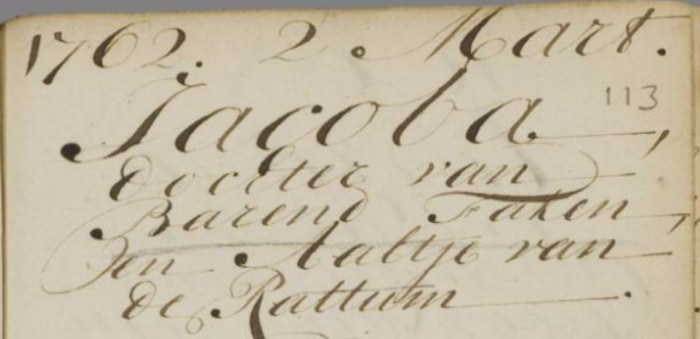 1762. 2. Mart.
113
Jacoba,
dochter van
Barend Faken,
en Aaltje van
de Rattum.